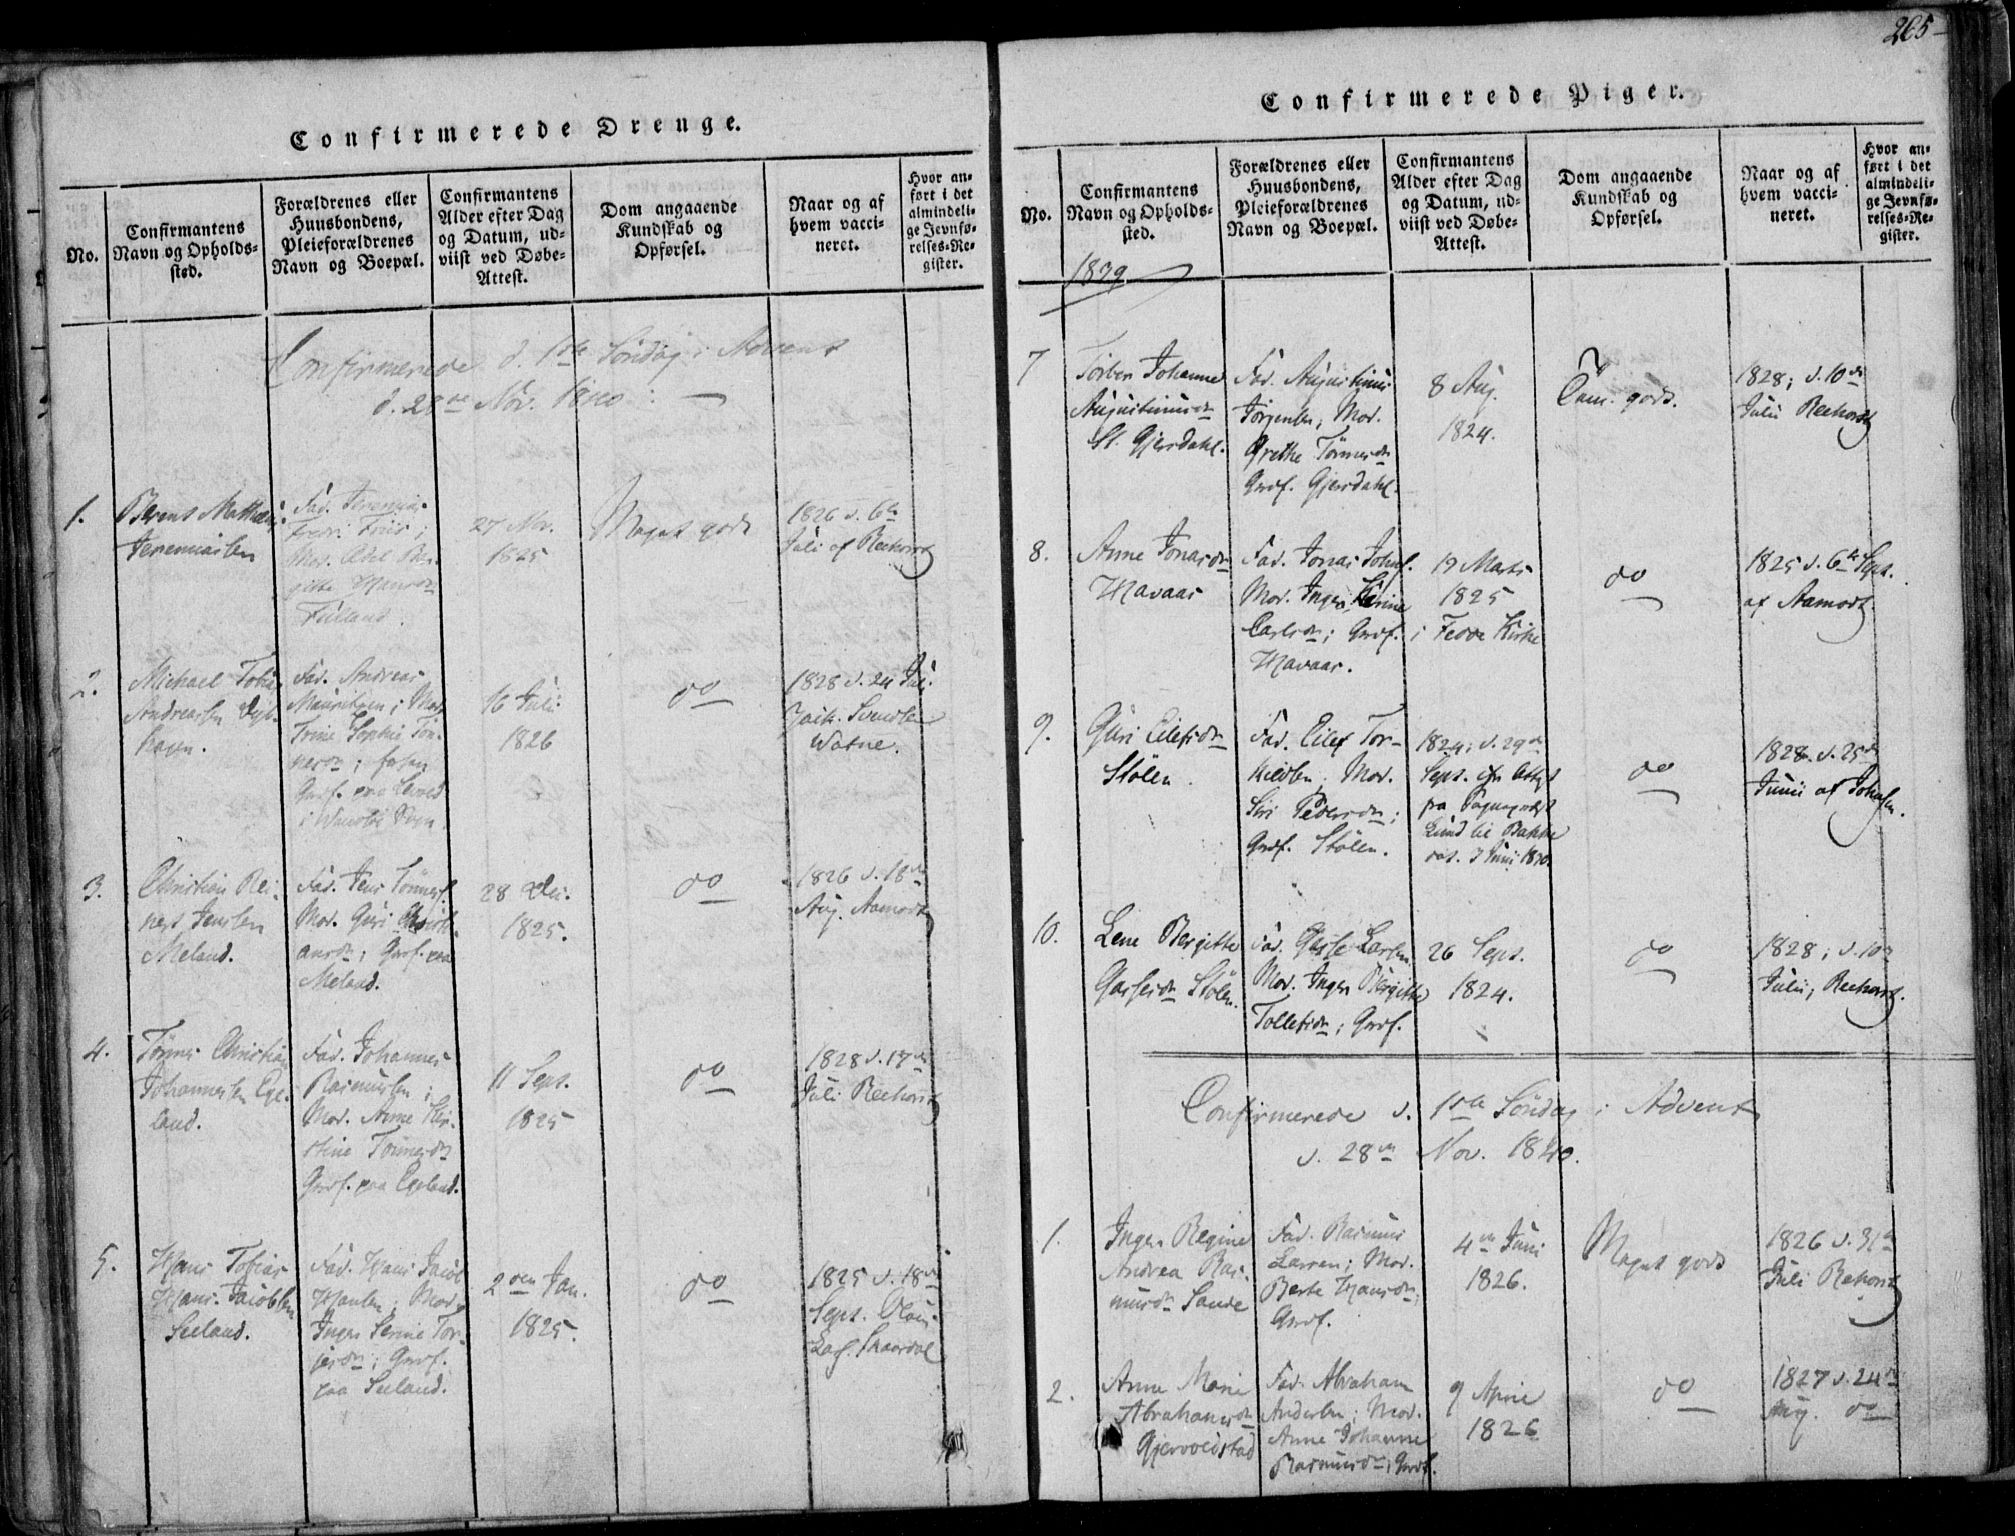 Confirmerede Drenge.
No.
Confirmantens
Navn og Opholds-
sted.
Forældrenes eller
Huusbondens,
Pleieforældrenes
Navn og Boepæl.
Confirmantens
Alder efter Dag
og Datum, ud-
viist ved Døbe-
Attest.
Dom angaaende
Kundskab og
Opførsel.
Naar og af
hvem vacci-
neret.
Hvor an-
ført i det
almindeli-
ge Jevnfø-
relses-Re-
gister.
Confirmerede d. 1ste Søndag i Advent
d. 28de Nov. 1840.
1.
Berent Mathias
Jeremiasen
Fad. Jeremias
Fredr. Friis;
Mor.
gitte Hansdr
27 Nov.
1825
Meget godt
1826 d. 6te
Juli af Reehorst
2.
Michael Tobias
Andreasen
hagen.
Fad. Andreas
Mauritzen; Mor.
Trine Sophie Tøn-
nesdr;
Gmf. paa
16 Juli
1826
do
1828 d. 24 Juli
Svendsen
Watne.
3.
Christian Rei-
nert Jensen
Meland.
Fad. Jens Tønnes.
Mor. Guri Christi-
ansdr; Gmf. paa
Meland.
28 Dec.
1825.
do
1826 d. 18de
Aug. Aamodt
4.
Tønnes Christian
Johannesen Ege-
land.
Fad. Johannes
Rasmussen;
Mor. Anne Kir-
stine Tønnesdr
Gmf. paa Egeland.
11 Sept.
1825
do
1828 d. 17de
Juli Reehorst
5.
Hans Tobias
Hans. Jacobsen
Seeland.
Fad. Hans Jacob
Hansen; Mor.
Inger Serine Tor-
jersdr; Gmf.
paa Seeland.
2den Jan.
1825.
do
1825 d. 18de
Sept. Olaus
Skaardal
265
Confirmerede Piger.
No.
Confirmantens
Navn og Opholds-
sted.
Forældrenes eller
Huusbondens,
Pleieforældrenes
Navn og Boepæl.
Confirmantens
Alder efter Dag
og Datum, ud-
viist ved Døbe-
Attest.
Dom angaaende
Kundskab og
Opførsel.
Naar og af
hvem vacci-
neret.
Hvor an-
ført i det
almindeli-
ge Jevnfø-
relses-Re-
gister.
1839
7
Torbor Johanne
Augustinusdr
St. Gjersdahl.
Fad. Augustinus
Jørgensen; Mor.
Grethe Tønnesdr
Gmf. Gjersdahl.
8 Aug.
1824.
Tem. godt.
1828; d. 10de
Julii Reehorst
8.
Anne Jonasdr
Havaas
Fad. Jonas Johns.
Mor. Inger Serine
Carlsdr; Gmf.
Havaas.
19 Marts
1825
i Fedde Kirke
do
1825 d. 6te Sept.
af Aamodt
9.
Guri Eilefsdr
Stølen.
Fad. Eilef Tor-
kildsen; Mor.
Siri Pedersdr;
Gmf. Stølen.
1824; d. 29de
Sept. efter Attest
fra Sognepræst
Lund til Bakke
dat. 7 Juni 1830.
do
1828 d. 25de
Junii af Johnsen.
10.
Lene Bergitte
Garselsdr Stølen.
Fad. Larsen
Mor. Inger Bergitte
Tollefsdr; Gmf.
26 Sept.
1824.
do
1828; d. 10de
Julii; Reehorst.
Confirmerede d. 1ste Søndag i Advent
d. 28de Nov. 1840.
1.
Inger Regine
Andrea Ras-
musdr Sande
Fad. Rasmus
Larsen; Mor.
Berte Hansdr;
Gmf.
4de Juni
1826.
Meget godt
1826 d. 31te
Juli Reehorst
2.
Anne Marie
Abrahamsdr
Gjervoldstad
Fad. Abraham
Andersen; Mor.
Anne Johanne
Rasmusdr; Gmf.
9 April
1826
do
1827 d. 24de
Aug. do